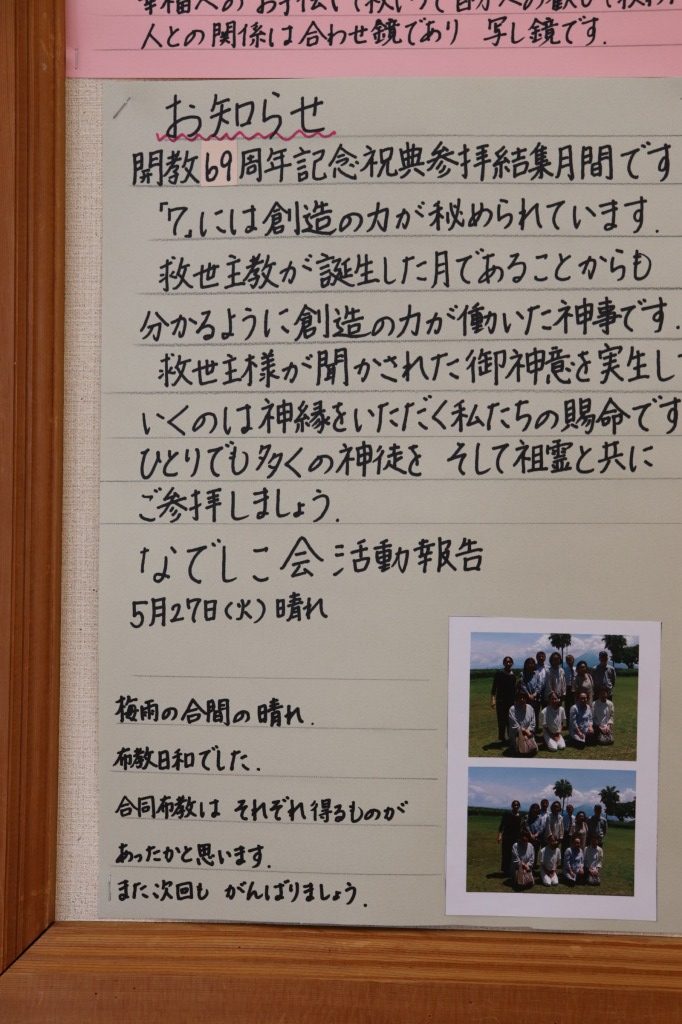 幸福へのお手伝い
人との関係は合わせ鏡であり 写し鏡です.
お知らせ
開教69周年記念祝典参拝結集月間です
「7」には創造の力が秘められています.
救世主教が誕生した月であることからも
分かるように創造の力が働いた神事です.
救世主様が聞かされた御神意を実生して
いくのは神縁をいただく私たちの賜命です
ひとりでも多くの神徒を そして祖霊と共に
ご参拝しましょう.
なでしこ会活動報告
5月27日(火) 晴れ
梅雨の合間の晴れ.
布教日和でした.
合同布教は それぞれ得るものが
あったかと思います.
また次回も がんばりましょう.